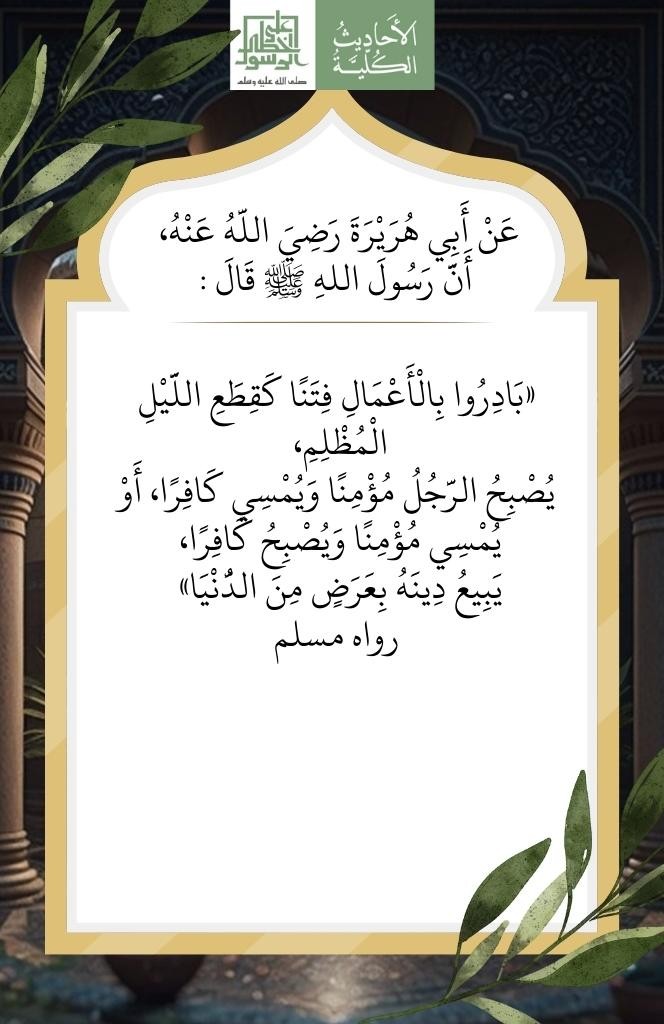 على خطى الرسول
صلى الله عليه وسلم
الأَحَادِيثُ
الكُلِّيَّةُ
عَنْ أَبِي هُرَيْرَةَ رَضِيَ اللّهُ عَنْهُ،
أَنَّ رَسُولَ اللهِ ﷺ قَالَ :
«بَادِرُوا بِالْأَعْمَالِ فِتَنًا كَقِطَعِ اللّيْلِ
الْمُظْلِمِ،
يُصْبِحُ الرّجُلُ مُؤْمِنًا وَيُمْسِي كَافِرًا، أَوْ
يُمْسِي مُؤْمِنًا وَيُصْبِحُ كَافِرًا،
يَبِيعُ دِينَهُ بِعَرَضٍ مِنَ الدُّنْيَا»
رواه مسلم